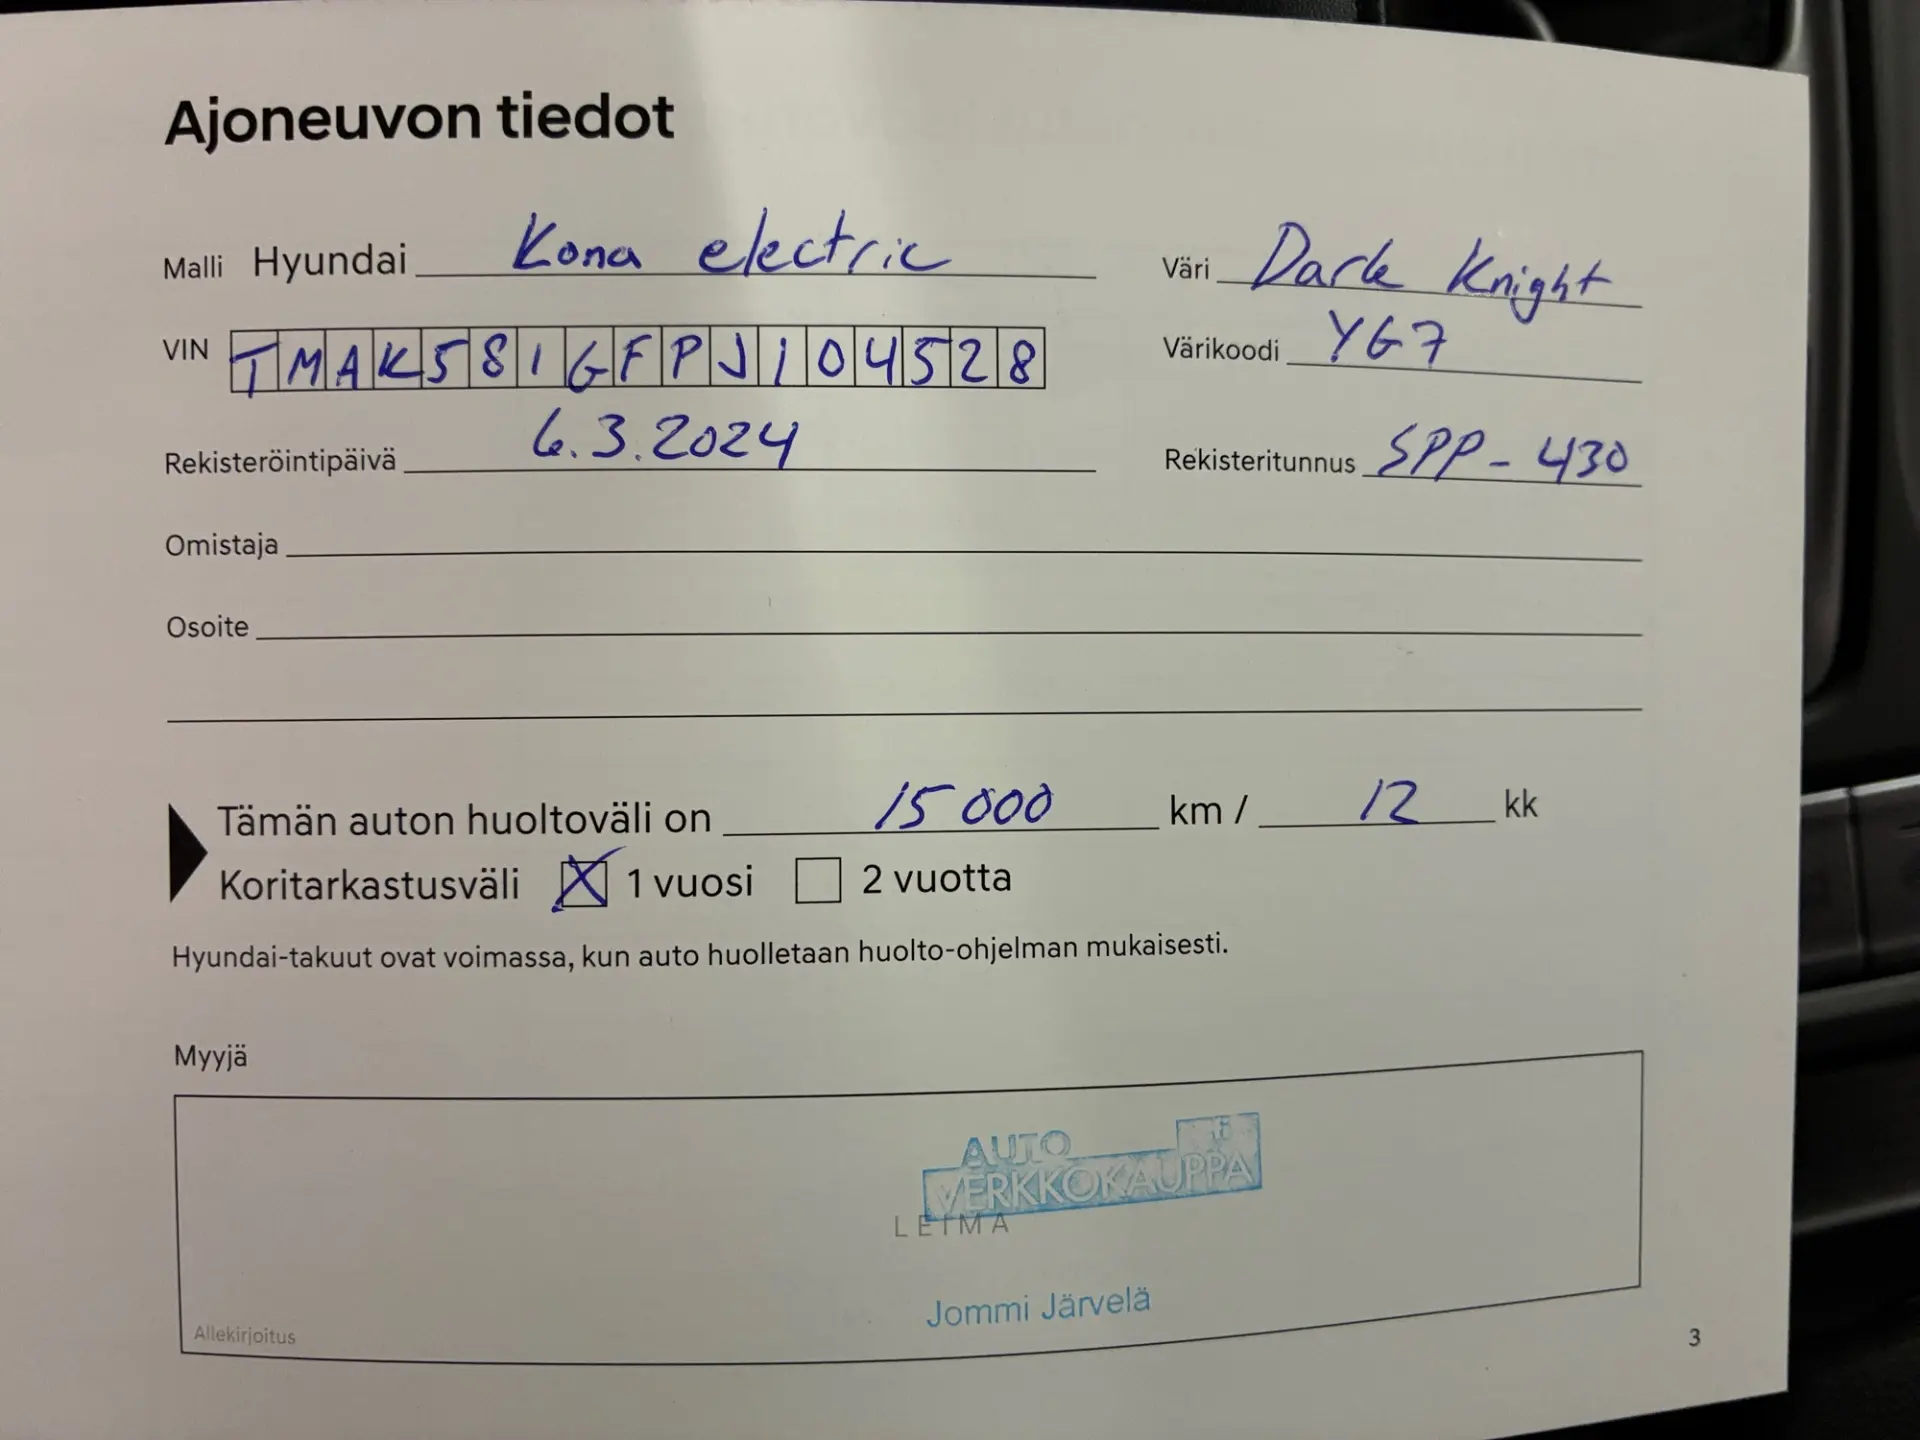 Ajoneuvon tiedot
Malli Hyundai Kona electric
Väri Dark Knight
VIN TMAK581GFPJ104528
Värikoodi YG7
Rekisteröintipäivä 6.3.2024
Rekisteritunnus SPP-430
Omistaja
Osoite
Tämän auton huoltoväli on 15 000 km / 12 kk
Koritarkastusväli X 1 vuosi 2 vuotta
Hyundai-takuut ovat voimassa, kun auto huolletaan huolto-ohjelman mukaisesti.
Myyjä
AUTO fi
VERKKOKAUPPA
LEIMA
Jommi Järvelä
Allekirjoitus
3